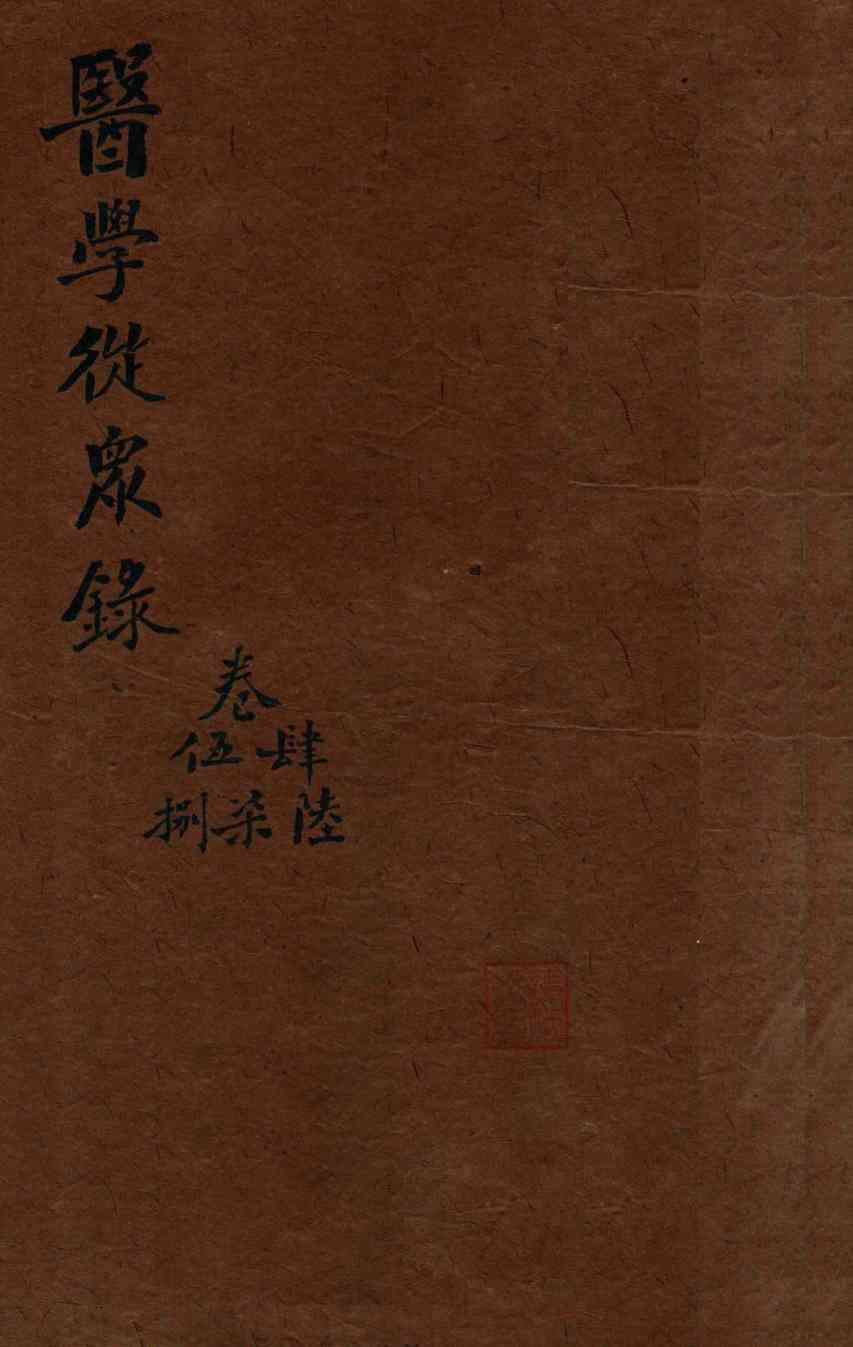 醫學從眾錄
卷
肆伍
陸柒捌